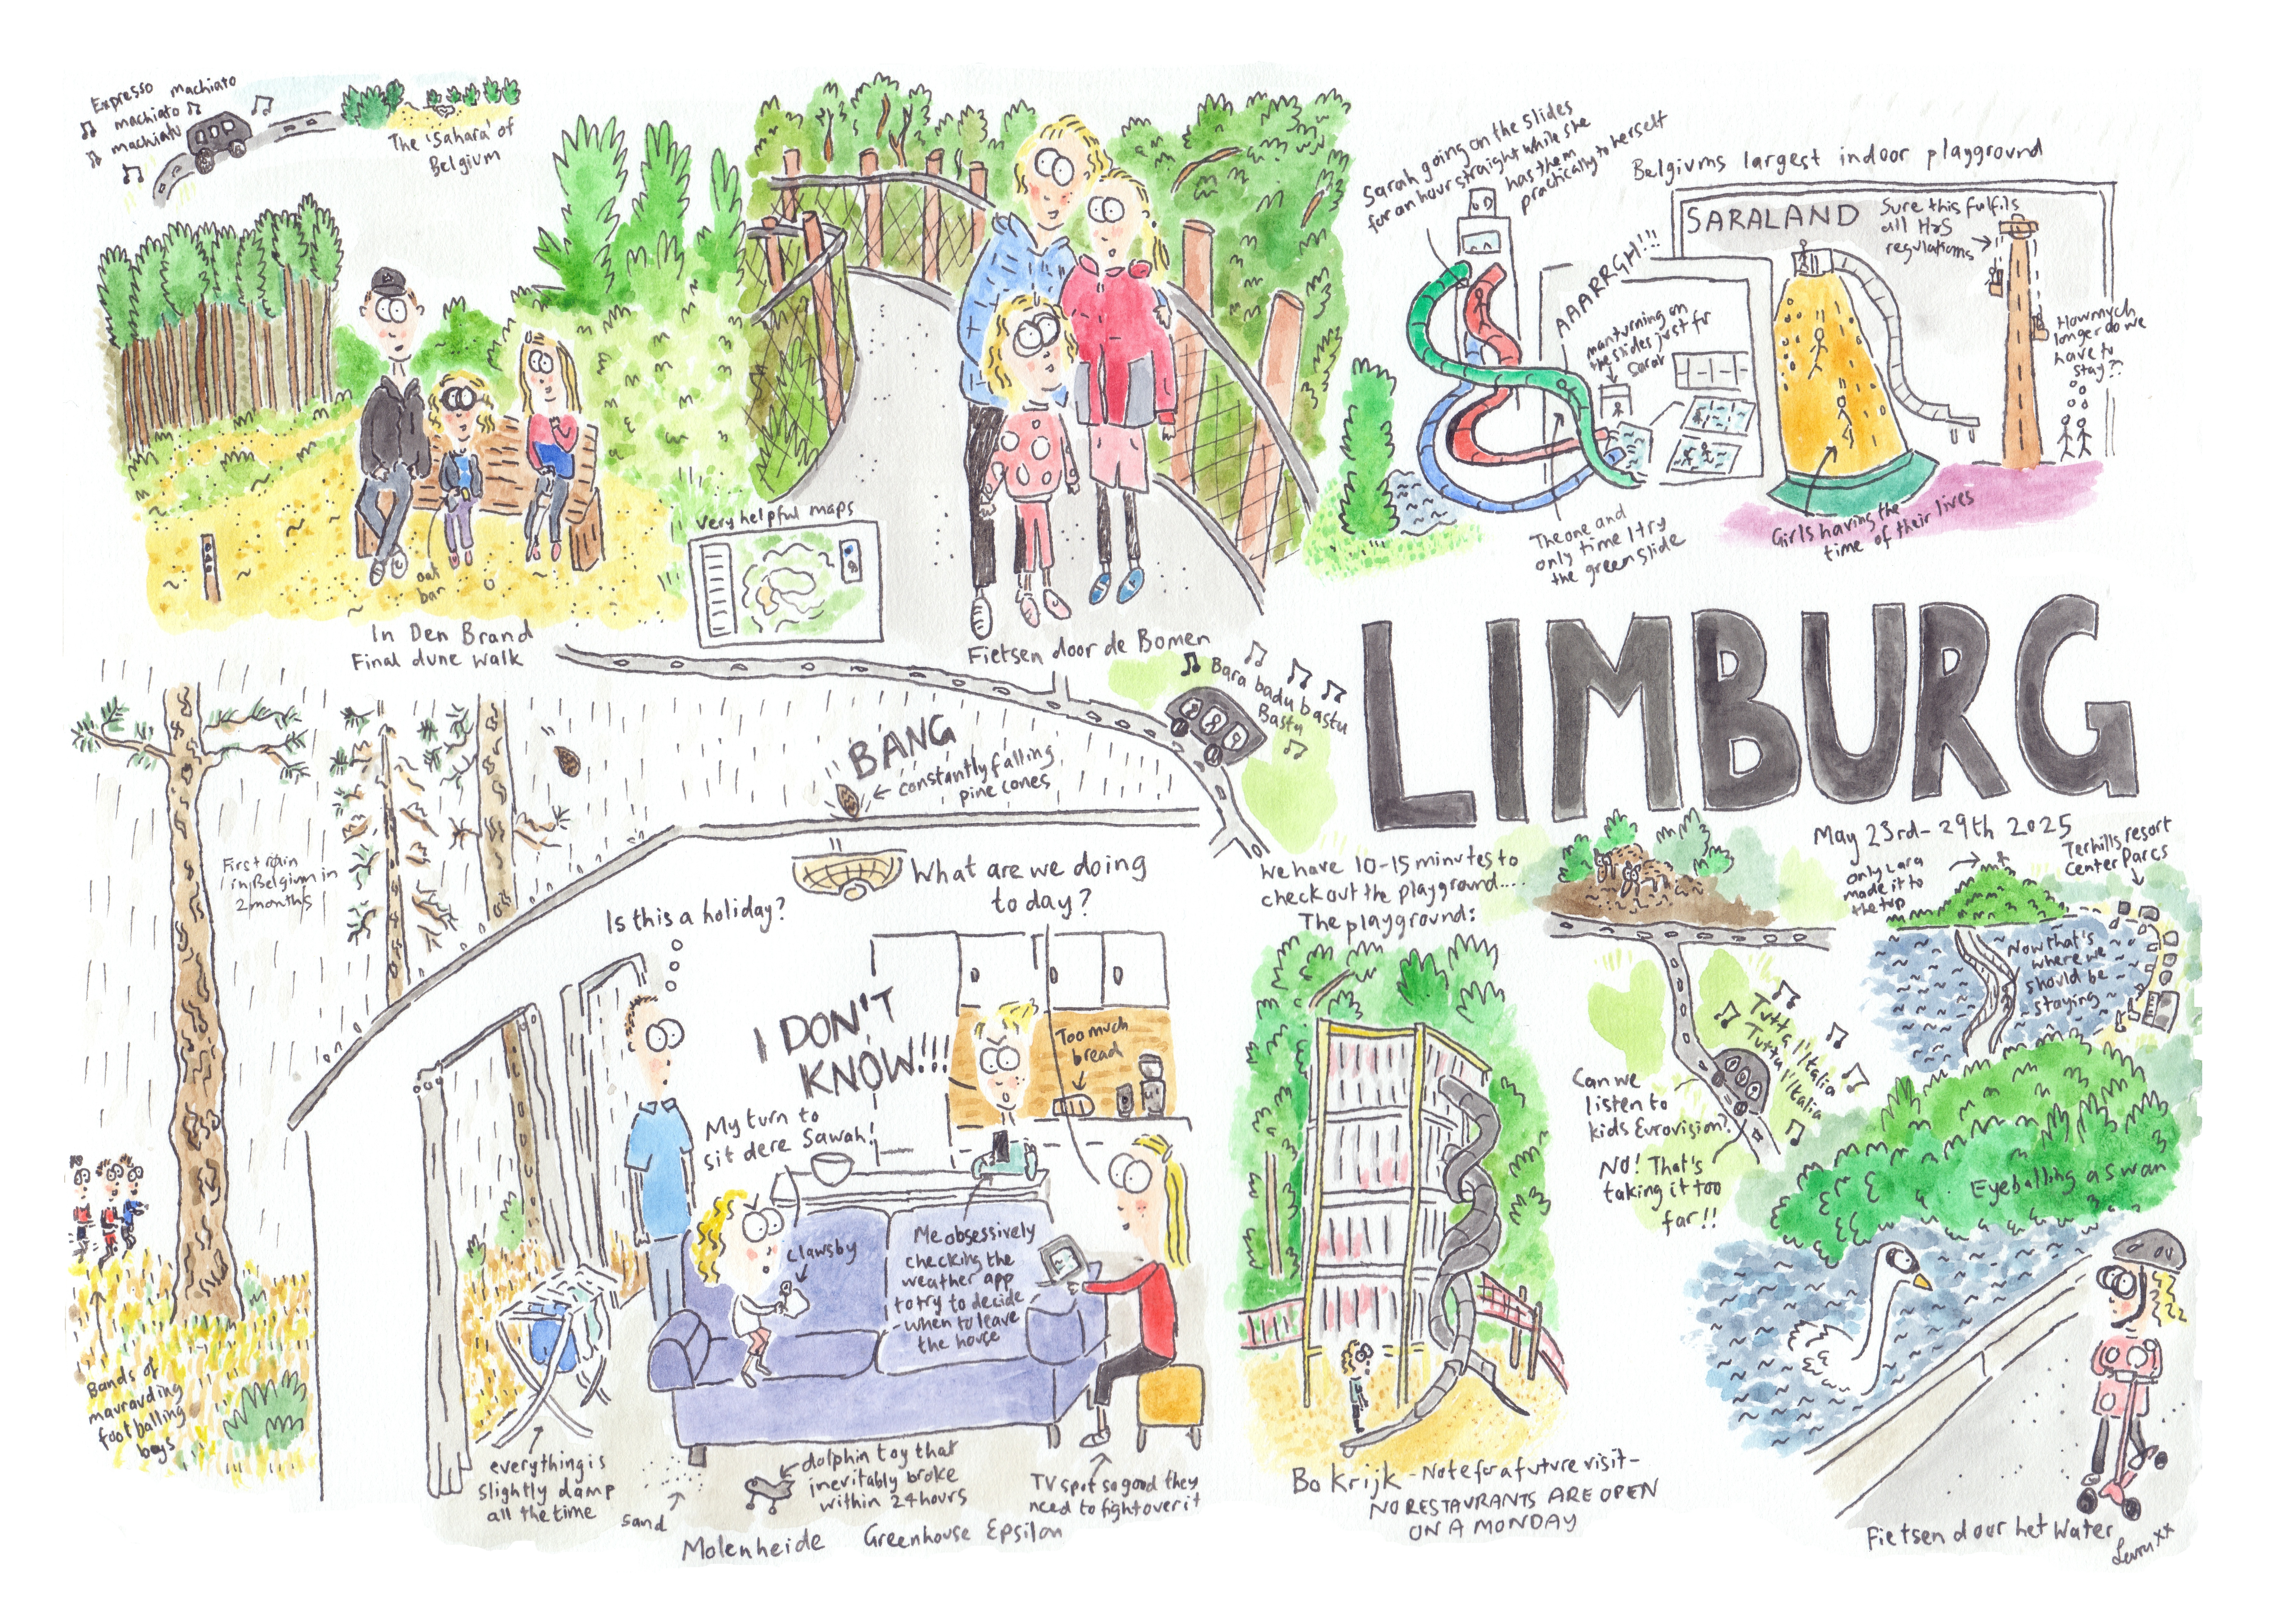 Expresso machiato
machiato
machiato
The 'Sahara' of
Belgium
oat
bar
In Den Brand
Final dune walk
very helpful maps
Fietsen door de Bomen
Sarah going on the slides
for an hour straight while she
has them
practically to herself
AAARRGH!!!
man turning on
the slides just for
Sarah
The one and
only time I try
the green slide
Belgiums largest indoor playground
SARALAND
Sure this fulfils
all H&S
regulations
How much
longer do we
have to
stay??
Girls having the
time of their lives
LIMBURG
May 23rd-29th 2025
Bara badu bastu
Bastu
BANG
constantly falling
pine cones
First rain
in Belgium in
2 months
Bands of
marauding
footballing
boys
Is this a holiday?
What are we doing
today?
I DON'T
KNOW!!!
Too much
bread
My turn to
sit dere Sawah!
Clawsby
Me obsessively
checking the
weather app
to try to decide
when to leave
the house
everything is
slightly damp
all the time
sand
dolphin toy that
inevitably broke
within 24 hours
TV spot so good they
need to fight over it
Molenheide Greenhouse Epsilon
We have 10-15 minutes to
check out the playground....
The playground:
Bokrijk - Note for a future visit -
NO RESTAURANTS ARE OPEN
ON A MONDAY
only Lara
made it to
the top
Terhills resort
Center Parcs
Now that's
where we
should be
staying
Tutta l'Italia
Tutta l'Italia
Can we
listen to
kids Eurovision?
NO! That's
taking it too
far!!
Eyeballing a swan
Fietsen door het Water